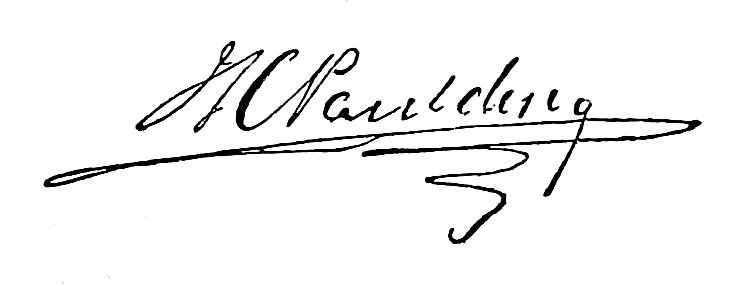 H C Paulding